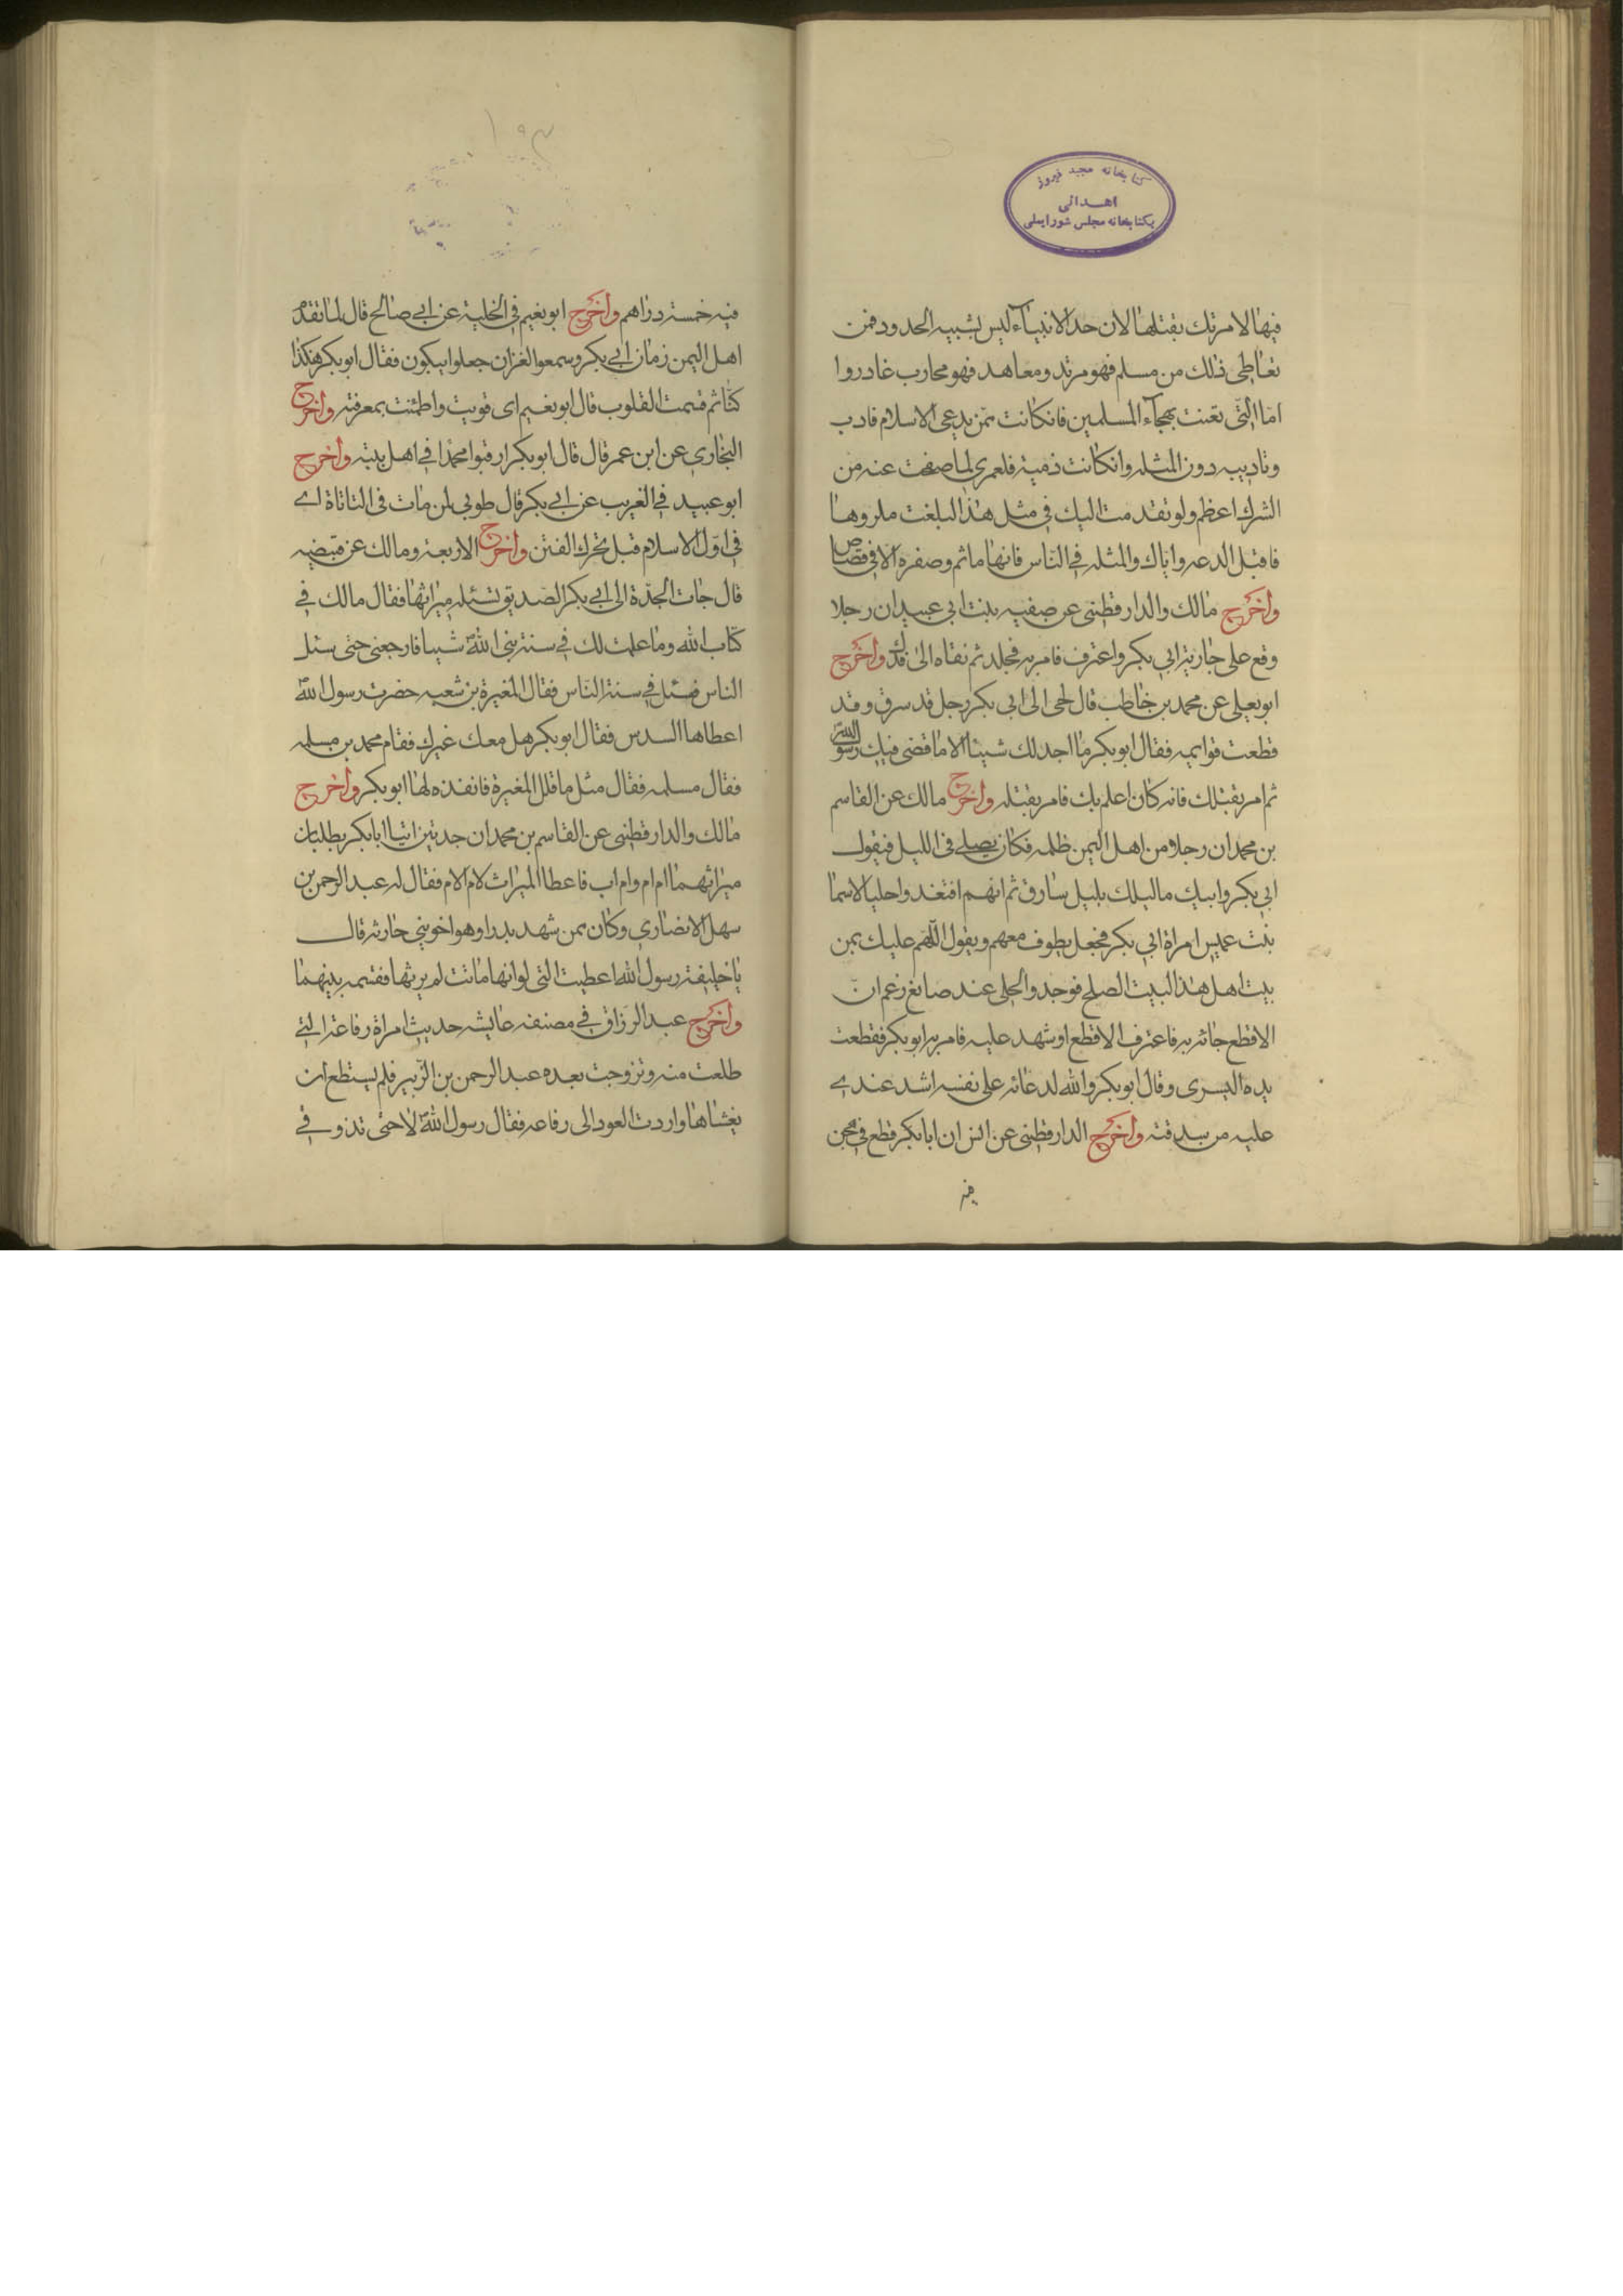 کتابخانه مجید فیروز
اهدائی
بکتابخانه مجلس شورایملی
فيها لامرتك بقتلها لان حد الانبياء ليس يشبيه الحدود فمن
تعاطى ذلك من مسلم فهو مرتد ومعاهد فهو محارب غادر واما
اما التى تغنت بهجاء المسلمين فانكانت ممن يدعى الاسلام فادب
وتاديب دون المثله وانكانت ذمية فلعمرى لما صفحت عنه من
الشرك اعظم ولو تقدمت اليك فى مثل هذا لبلغت مكروها
فاقبل الدعه واياك والمثله فى الناس فانها ماثم وصفره الا فى قصاص
واخرج مالك والدارقطنى عن صفيه بنت ابى عبيد ان رجلا
وقع على جارية ابى بكر واعترف فامر به فجلد ثم نفاه الى فدك واخرج
ابويعلى عن محمد بن خاطب قال لحى الى ابى بكر رجل قد سرق وقد
قطعت قوايمه فقال ابوبكر ما اجد لك شيئا الا ما قضى فيك رسول الله
ثم امر بقتلك فانه كان اعلم بك فامر بقتله واخرج مالك عن القاسم
بن محمد ان رجلا من اهل اليمن ظلمه فكان يصلى فى الليل فيقول
ابى بكر وابيك ماليلك بليل سارق ثم انهم افتقد واحليا لاسما
بنت عميس امراة ابى بكر فجعل يطوف معهم ويقول اللهم عليك بمن
بيت اهل هذا البيت الصلح فوجدوا الحلى عند صايغ زعم ان
الاقطع جائه به فاعترف الاقطع اوشهد عليه فامر به ابوبكر فقطعت
يده اليسرى وقال ابوبكر والله لدعائه على نفسه اشد عندى
عليه من سرقته واخرج الدارقطنى عن انس ان ابابكر قطع فى مجن
فيه
١٩٣
فيه خمسة دراهم واخرج ابونعيم فى الحلية عن ابى صالح قال لما تقدم
اهل اليمن زمان ابى بكر وسمعوا القران جعلوا يبكون فقال ابوبكر هكذا
كنا ثم قست القلوب قال ابونعيم اى قويت واطمئنت بمعرفته واخرج
البخارى عن ابن عمر قال قال ابوبكر ارقبوا محمدا فى اهل بيته واخرج
ابوعبيد فى الغريب عن ابى بكر قال طوبى لمن مات فى التاتاة اى
فى اول الاسلام قبل تحرك الفتن واخرج الاربعة ومالك عن قبيضه
قال جات الجدة الى ابى بكر الصديق تسئله ميراثها فقال مالك فى
كتاب الله وما علمت لك فى سنة نبى الله شيئا فارجعنى حتى سئل
الناس فسئل فى سنة الناس فقال المغيرة بن شعبه حضرت رسول الله
اعطاها السدس فقال ابوبكر هل معك غيرك فقام محمد بن مسلمه
فقال مسلمه فقال مثل ماقلل المغيرة فانفذه لها ابوبكر واخرج
مالك والدارقطنى عن القاسم بن محمد ان جدتين اتيا ابابكر يطلبان
ميراثهما ام ام وام اب فاعطا الميراث لام الام فقال له عبد الرحمن بن
سهل الانصارى وكان ممن شهد بدرا وهو اخوبنى حارثه قال
يا خليفة رسول الله اعطيت التى لو انها ماتت لم يرثها فقسمه بينهما
واخرج عبد الرزاق فى مصنفه عايشه حديث امراة رفاعة التى
طلعت منه وتزوجت بعده عبد الرحمن بن الزبير فلم يستطع ان
يغشاها واردت العود الى رفاعه فقال رسول الله لا حتى تذوقى